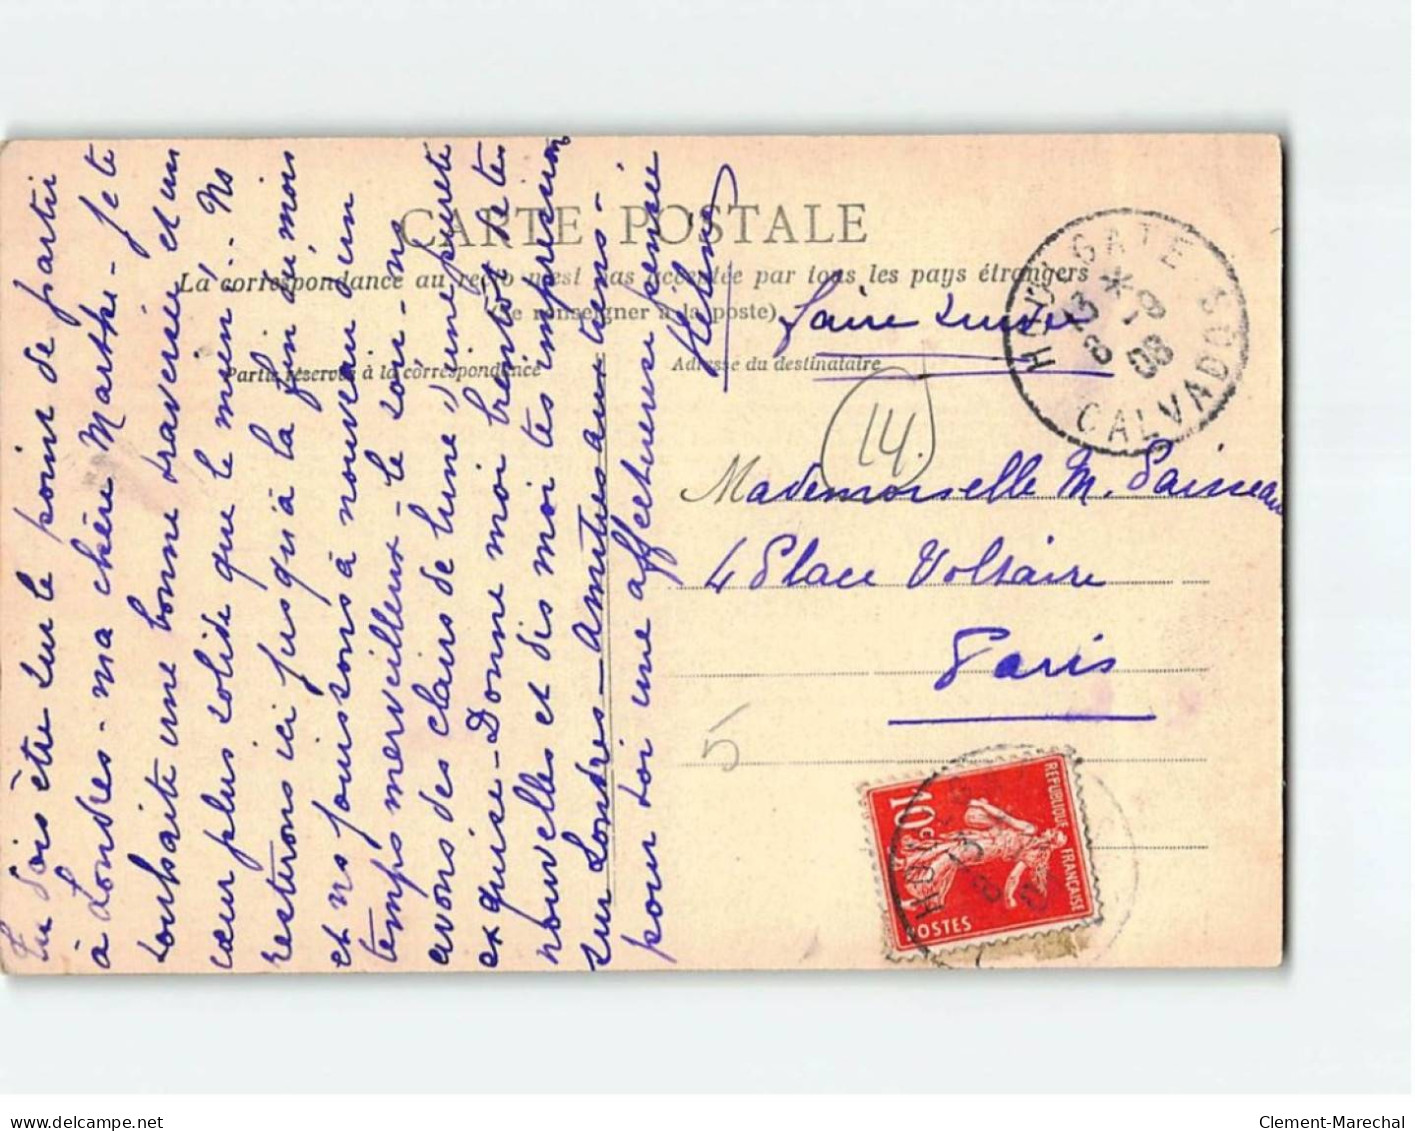 CARTE POSTALE
La correspondance au recto n'est pas acceptée par tous les pays étrangers
(Se renseigner à la poste)
Partie réservée à la correspondance
Adresse du destinataire
faire suivre
14
Mademoiselle M. Painseau
4 Place Voltaire
Paris
5
HOULGATE
13 - 9
8 08
CALVADOS
10c
REPUBLIQUE FRANÇAISE
POSTES
Tu dois être sur le point de partir
à Londres - ma chère Marthe - je te
souhaite une bonne traversée et un
cœur plus solide que le mien ! - Ns
resterons ici jusqu'à la fin du mois
et ns jouissons à nouveau d'un
temps merveilleux - le soir - ns
avons des clairs de lune d'une pureté
exquise - Donne moi bientôt de tes
nouvelles et dis moi tes impressions
sur Londres - Amitiés aux tiens -
pour toi une affectueuse pensée
Hélène
delcampe.net
Clement-Marechal